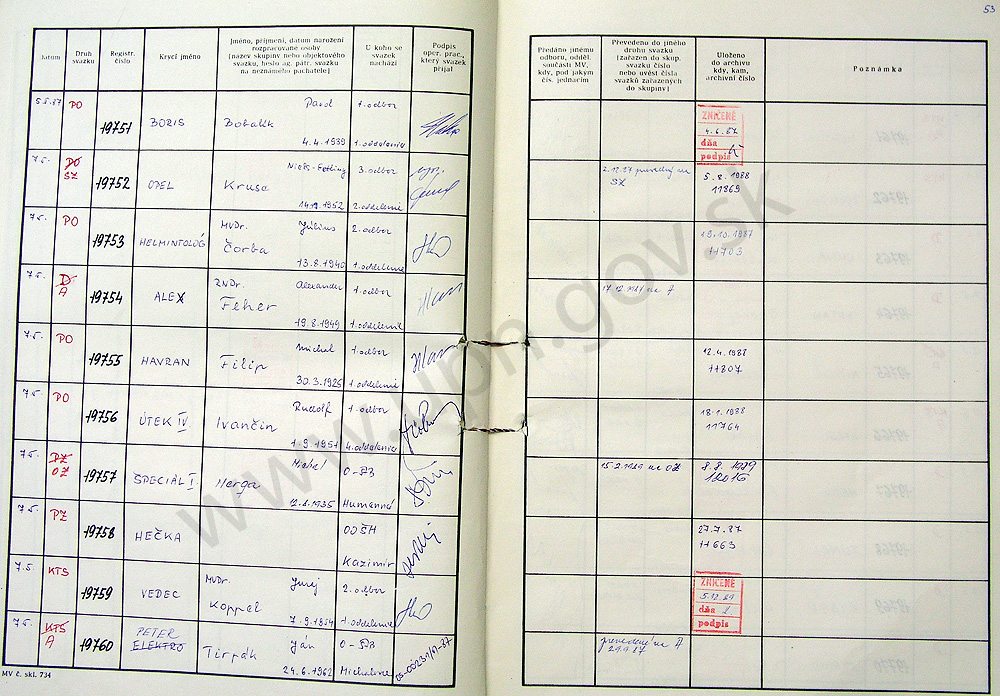 53
Datum
Druh svazku
Registr. číslo
Krycí jméno
Jméno, příjmení, datum narození rozpracované osoby
[název skupiny nebo objektového svazku, heslo ag. pátr. svazku na neznámého pachatele]
U koho se svazek nachází
Podpis oper. prac., který svazek přijal
Předáno jinému odboru, odděl. součásti MV, kdy, pod jakým čís. jednacím
Převedeno do jiného druhu svazku [zařazen do skup. svazku číslo nebo uvést čísla svazků zařazených do skupiny]
Uloženo do archivu kdy, kam, archivní číslo
Poznámka
5.5.87 PO 19751 BORIS Pavol 1. odbor
Bobalik
4.4.1939 1. oddelenie
ZNIČENÉ
4.6.87
dňa
podpis
7.5. PO SZ 19752 OPEL Niels-Folling 3. odbor
Kruse
14.12.1952 2. oddelenie
2.12.87 prevedený na SZ
5.8.1988
11869
7.5. PO 19753 HELMINTOLÓG MVDr. Július 2. odbor
Čorba
13.8.1940 1. oddelenie
19.10.1987
11703
7.5. D A 19754 ALEX RNDr. Alexander 1. odbor
Feher
19.8.1949 1. oddelenie
17.12.1987 na A
7.5. PO 19755 HAVRAN Michal 1. odbor
Filip
30.3.1925 1. oddelenie
12.4.1988
11807
7.5. PO 19756 ÚTEK IV Rudolf 1. odbor
Ivančin
1.9.1951 4. oddelenie
18.1.1988
11764
7.5. PZ OZ 19757 ŠPECIÁL I. Michal O-ŠB
Herga
12.8.1935 Humenné
15.2.1989 na OZ
8.8.1989
12016
7.5. PZ 19758 HEČKA OOŠH
Kazimír
27.7.87
11663
7.5. KTS 19759 VEDEC MVDr. Juraj 2. odbor
Koppel
7.9.1854 1. oddelenie
ZNIČENÉ
5.12.89
dňa
podpis
7.5. KTS A 19760 PETER
ELEKTRO Ján O-ŠB
Tirpák
24.6.1962 Michalovce
prevedené na A
MV č. skl. 734
www.upn.gov.sk